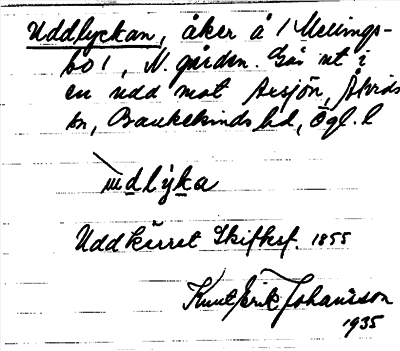 Uddlyckan, åker å 1 Mellings-
bo 1, N. gården. Går ut i
en udd mot Ärsjön, Åtvids
sn, Bankekinds hd, Ögl. l
ùdlỳka
Uddkärret Skifksf. 1855
Knut Erik Johansson
1935